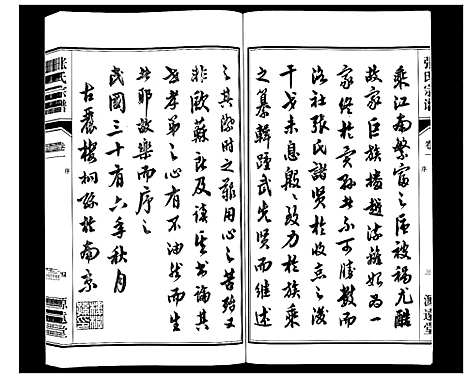 張氏宗譜
卷一
序
源遠堂
乘江南繁富之區被禍尤酷
故家巨族墻趙游離如為一
家條於實孫者不可勝數而
洛社張氏諸賢於收京之後
干戈未息殷殷致力於族乘
之纂輯踵武先賢而繼述
之其際時之艱用心之苦殆又
非歐蘇所及讀其書論其
世孝弟之心有不油然而生
者耶故樂而序之
民國三十有六年秋月
於南京
張氏宗譜
卷一
序
四
源遠堂